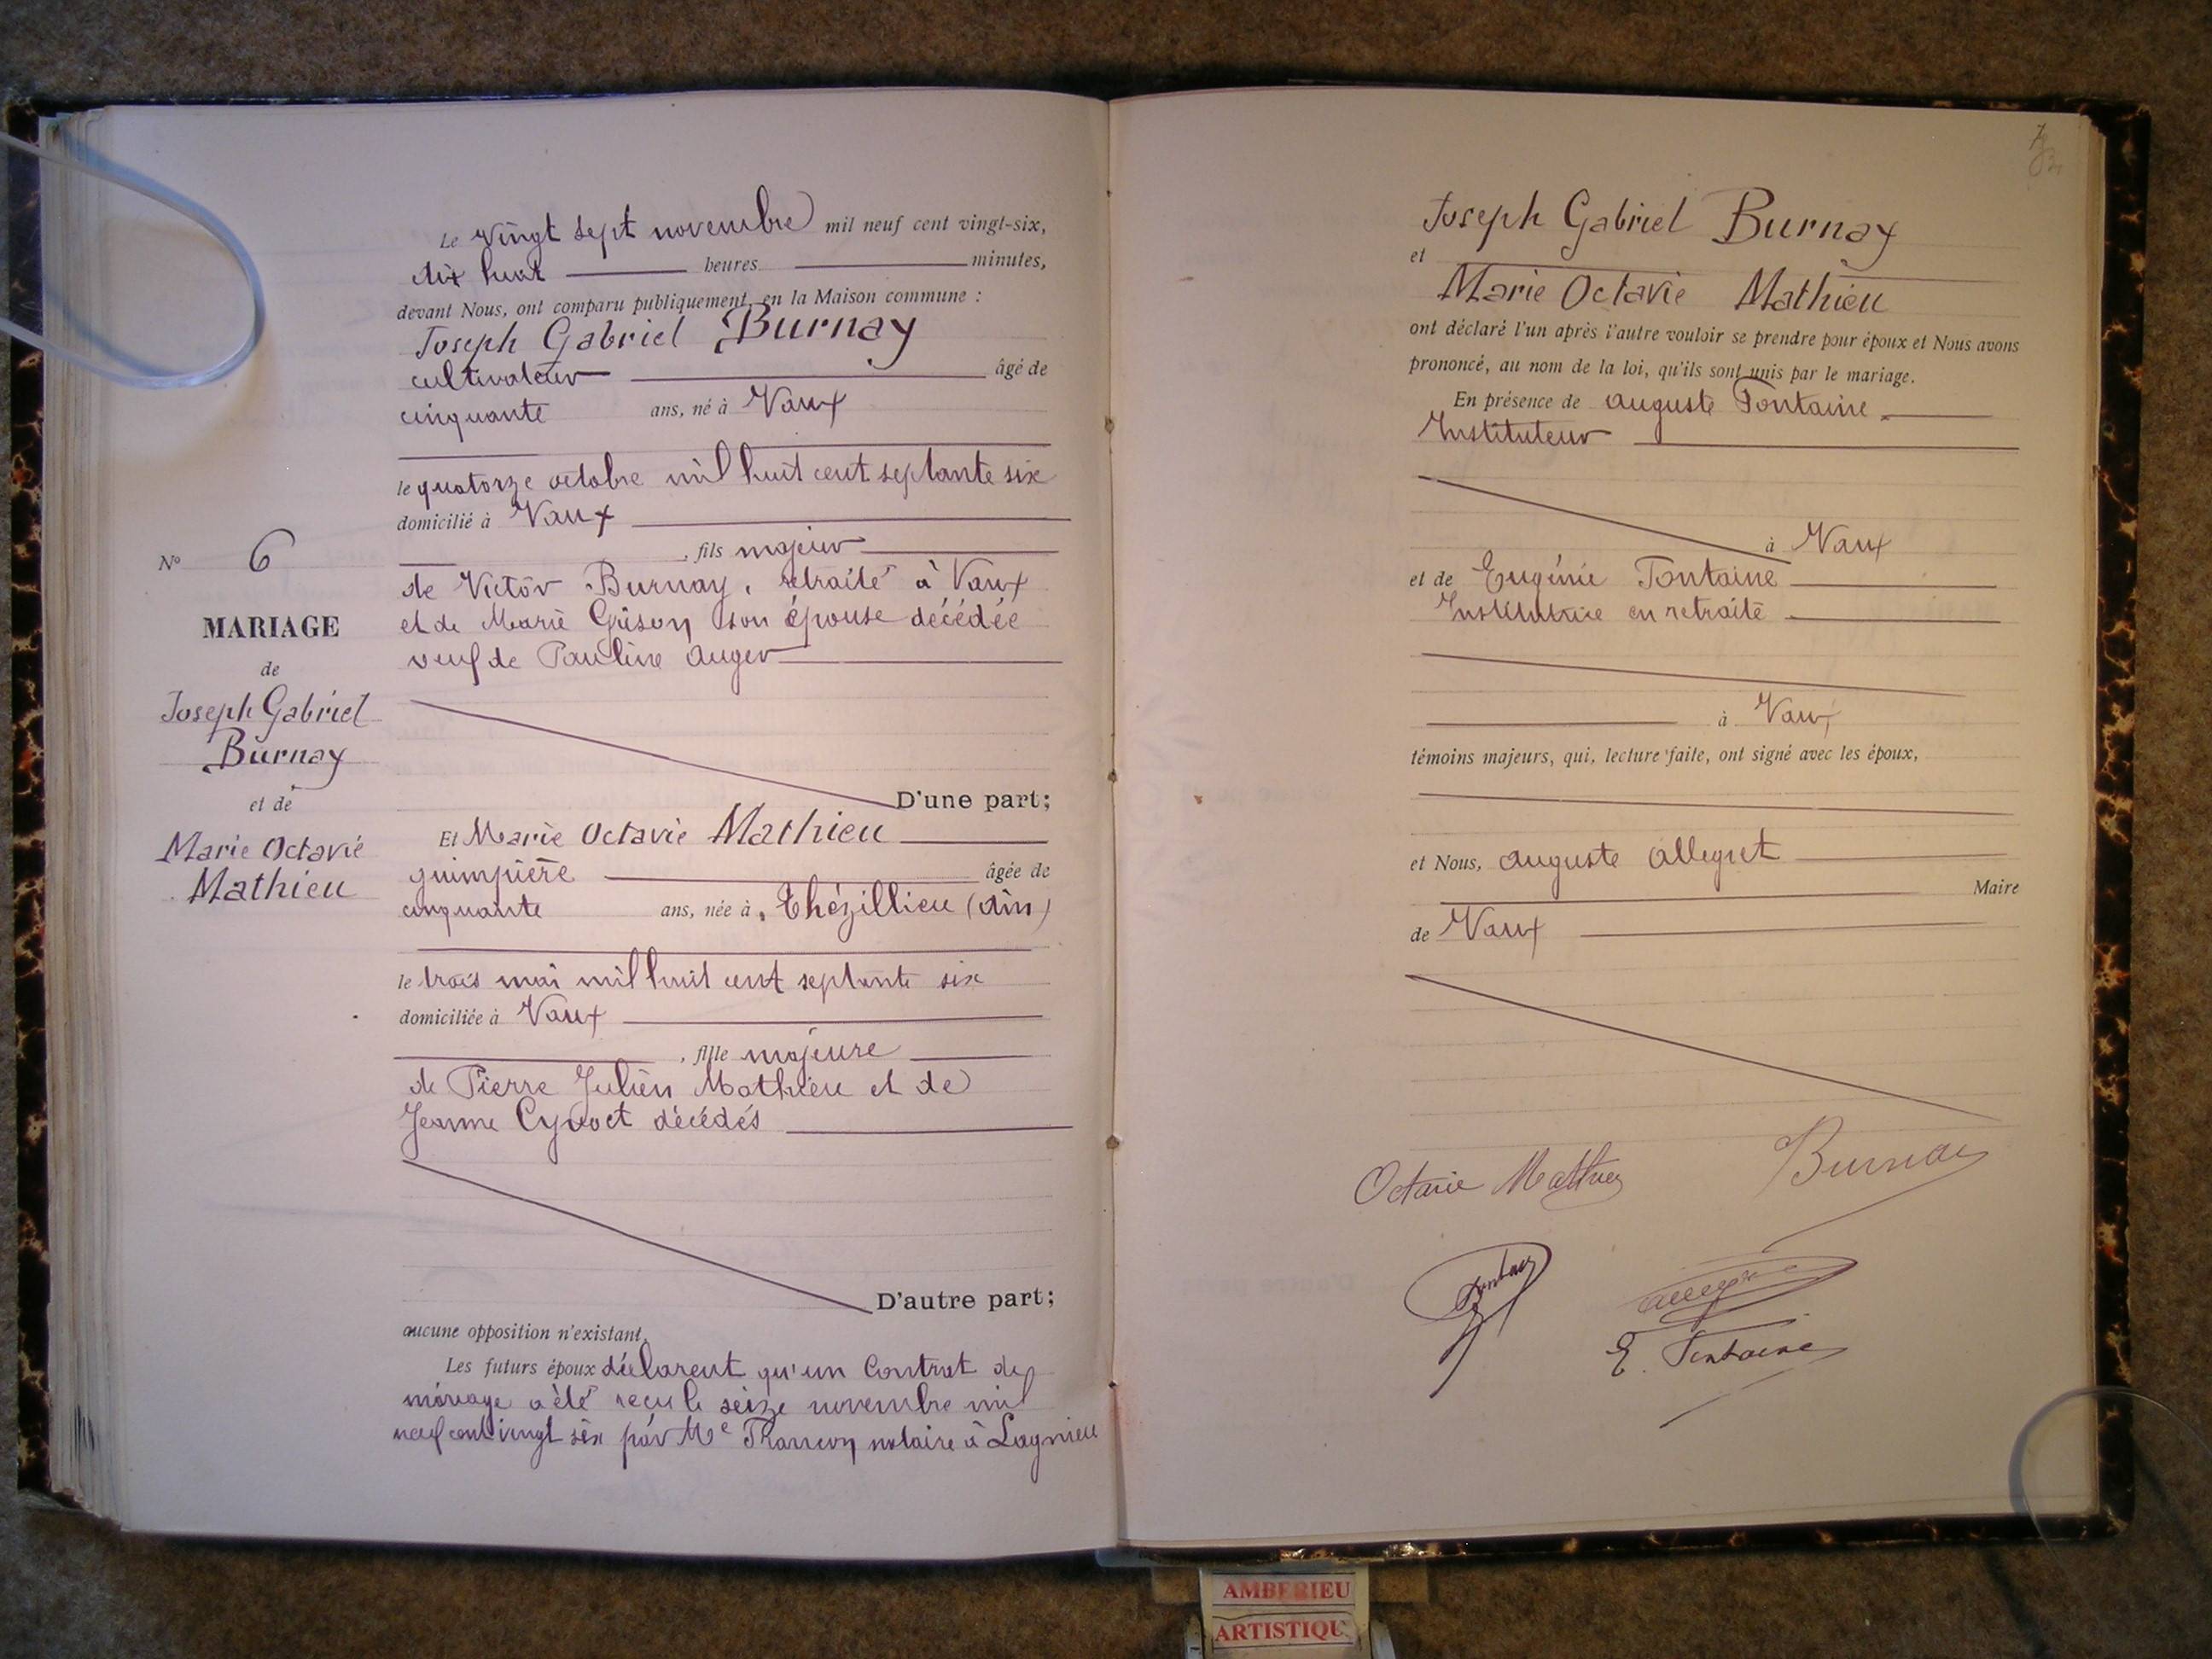 Le vingt sept novembre mil neuf cent vingt-six,
dix huit heures minutes,
devant Nous, ont comparu publiquement en la Maison commune :
Joseph Gabriel Burnay
cultivateur âgé de
cinquante ans, né à Vaux
le quatorze octobre mil huit cent septante six
domicilié à Vaux
, fils majeur
de Victor Burnay, retraité à Vaux
et de Marie Grison son épouse décédée
veuf de Pauline Auger
D'une part;
Et Marie Octavie Mathieu
guimpière âgée de
cinquante ans, née à Thézillieu (Ain)
le trois mai mil huit cent septante six
domiciliée à Vaux
, fille majeure
de Pierre Julien Mathieu et de
Jeanne Cyvoct décédés
D'autre part;
aucune opposition n'existant.
Les futurs époux déclarent qu'un Contrat de
mariage a été reçu le seize novembre mil
neuf cent vingt six par Me notaire à Lagnieu
No 6
MARIAGE
de
Joseph Gabriel
Burnay
et de
Marie Octavie
Mathieu
Joseph Gabriel Burnay
et
Marie Octavie Mathieu
ont déclaré l'un après l'autre vouloir se prendre pour époux et Nous avons
prononcé, au nom de la loi, qu'ils sont unis par le mariage.
En présence de Auguste Fontaine
Instituteur
à Vaux
et de Eugénie Fontaine
Institutrice en retraite
à Vaux
témoins majeurs, qui, lecture faite, ont signé avec les époux,
et Nous, Auguste Allegret
Maire
de Vaux
Octavie Mathieu Burnay
E. Fontaine
AMBERIEU
ARTISTIQU